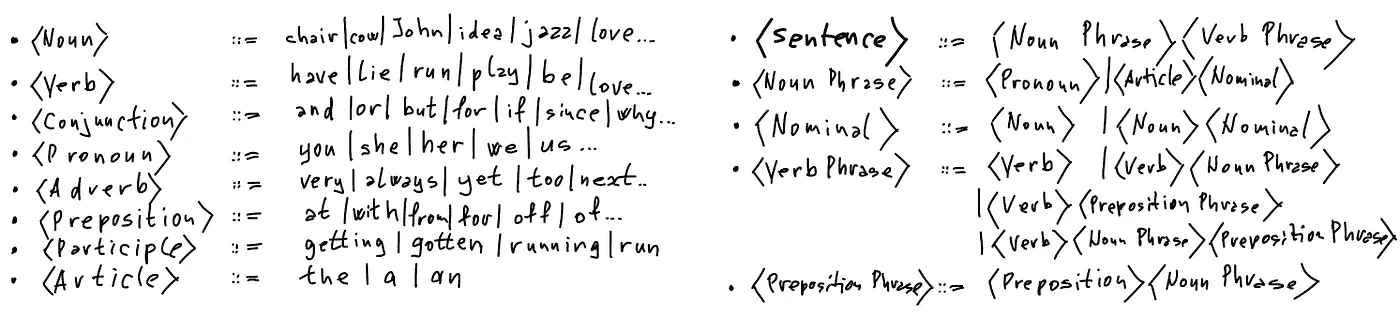 • <Noun> ::= chair|cow|John|idea|jazz|love...
• <Verb> ::= have|lie|run|play|be|love...
• <Conjunction> ::= and|or|but|for|if|since|why...
• <Pronoun> ::= you|she|her|we|us...
• <Adverb> ::= very|always|yet|too|next..
• <Preposition> ::= at|with|from|for|off|of...
• <Participle> ::= getting|gotten|running|run
• <Article> ::= the|a|an
• <sentence> ::= <Noun Phrase><Verb Phrase>
• <Noun Phrase> ::= <Pronoun>|<Article><Nominal>
• <Nominal> ::= <Noun> |<Noun><Nominal>
• <Verb Phrase> ::= <Verb> |<Verb><Noun Phrase>
|<Verb><Preposition Phrase>
|<Verb><Noun Phrase><Preposition Phrase>
• <Preposition Phrase> ::= <Preposition><Noun Phrase>